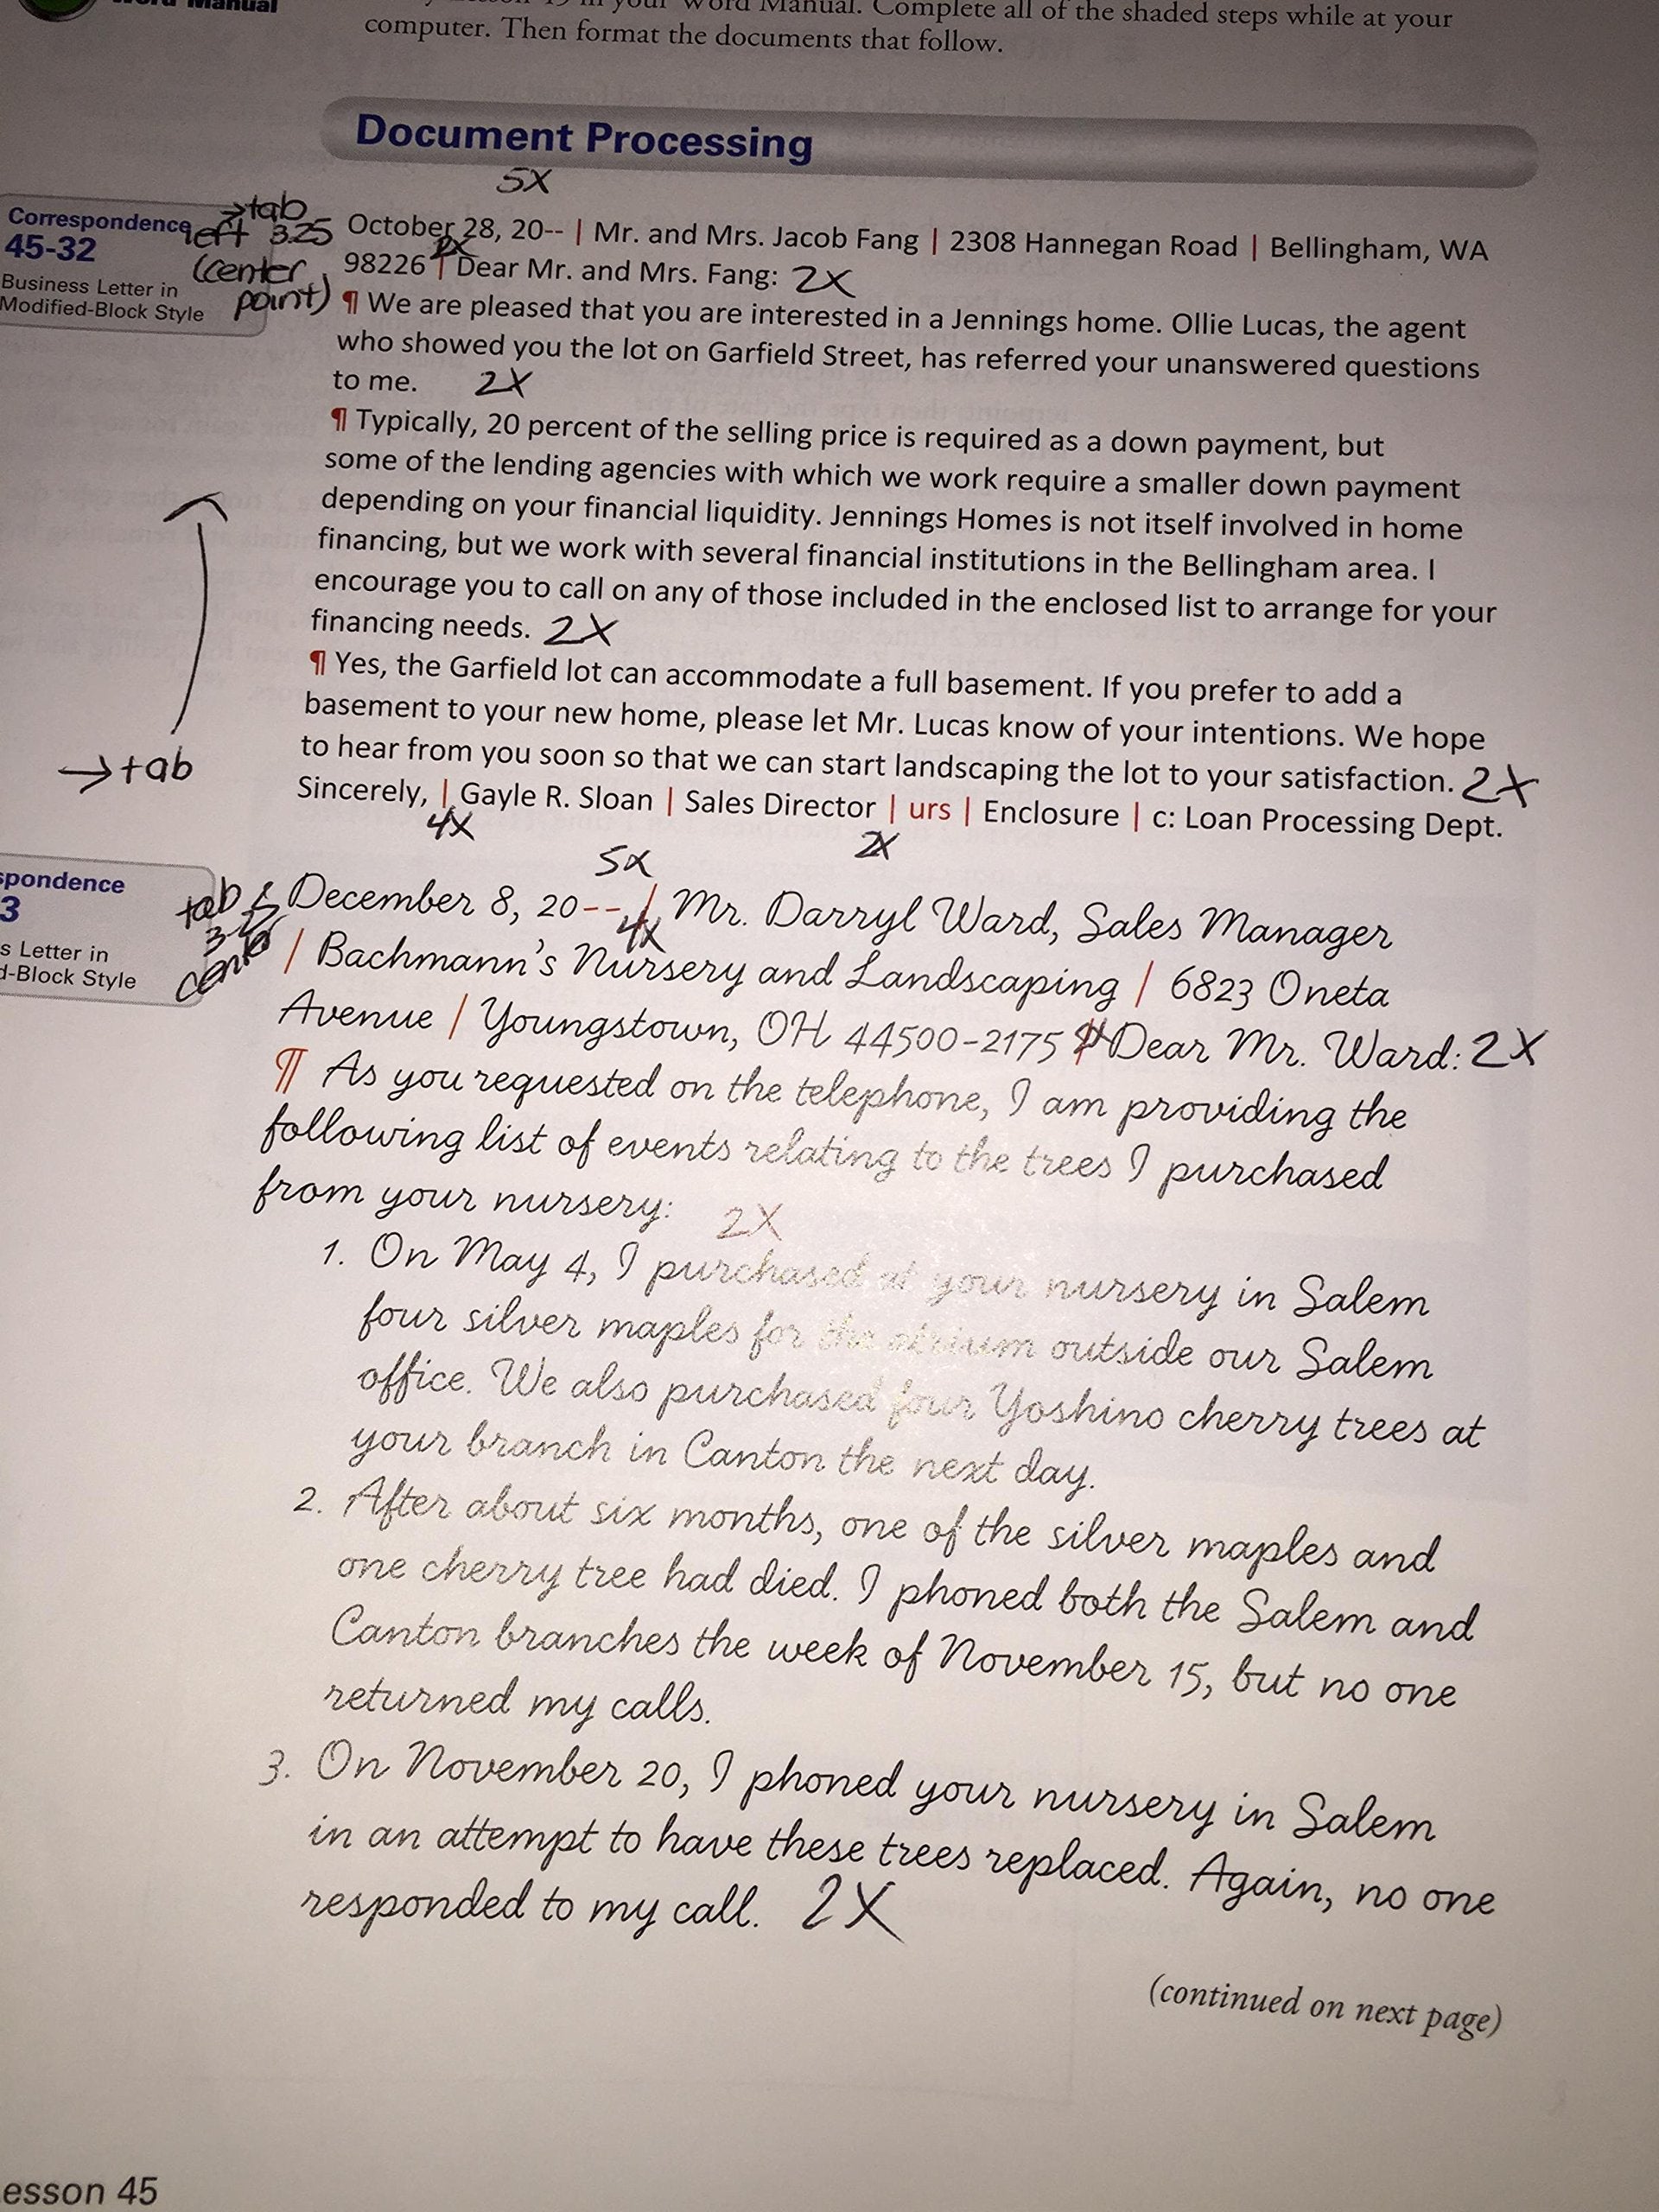 Word Manual
Lesson 45 in your Word Manual. Complete all of the shaded steps while at your
computer. Then format the documents that follow.
Document Processing
5X
Correspondence
45-32
Business Letter in
Modified-Block Style
→tab
left 3.25
(center
point)
October 28, 20-- | Mr. and Mrs. Jacob Fang | 2308 Hannegan Road | Bellingham, WA
2X
98226 | Dear Mr. and Mrs. Fang: 2X
¶ We are pleased that you are interested in a Jennings home. Ollie Lucas, the agent
who showed you the lot on Garfield Street, has referred your unanswered questions
to me. 2X
¶ Typically, 20 percent of the selling price is required as a down payment, but
some of the lending agencies with which we work require a smaller down payment
depending on your financial liquidity. Jennings Homes is not itself involved in home
financing, but we work with several financial institutions in the Bellingham area. I
encourage you to call on any of those included in the enclosed list to arrange for your
financing needs. 2X
¶ Yes, the Garfield lot can accommodate a full basement. If you prefer to add a
basement to your new home, please let Mr. Lucas know of your intentions. We hope
to hear from you soon so that we can start landscaping the lot to your satisfaction. 2X
→tab
Sincerely, | Gayle R. Sloan | Sales Director | urs | Enclosure | c: Loan Processing Dept.
4X 2X
5X
spondence
3
s Letter in
d-Block Style
tab
center
December 8, 20-- | Mr. Darryl Ward, Sales Manager
4X
| Bachmann's Nursery and Landscaping | 6823 Oneta
Avenue | Youngstown, OH 44500-2175 | Dear Mr. Ward: 2X
¶ As you requested on the telephone, I am providing the
following list of events relating to the trees I purchased
from your nursery: 2X
1. On May 4, I purchased at your nursery in Salem
four silver maples for the atrium outside our Salem
office. We also purchased four Yoshino cherry trees at
your branch in Canton the next day.
2. After about six months, one of the silver maples and
one cherry tree had died. I phoned both the Salem and
Canton branches the week of November 15, but no one
returned my calls.
3. On November 20, I phoned your nursery in Salem
in an attempt to have these trees replaced. Again, no one
responded to my call. 2X
(continued on next page)
esson 45